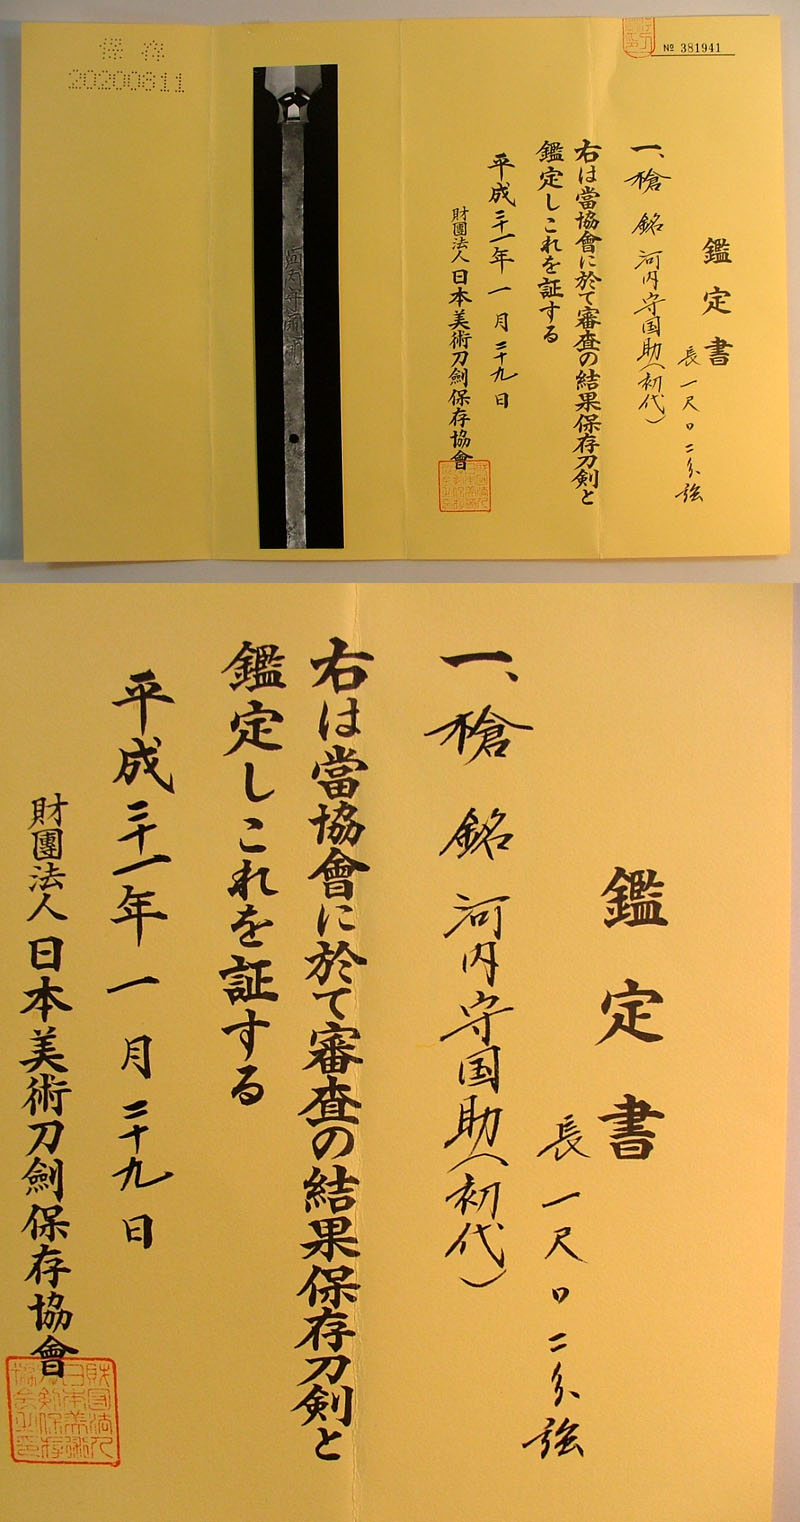 保存
20200811
№ 381941
鑑定書
長一尺〇二分強
一、槍 銘 河内守国助(初代)
右は當協會に於て審査の結果保存刀剣と
鑑定しこれを証する
平成三十一年一月二十九日
財團法人日本美術刀劍保存協會
河内守国助
鑑定書
長一尺〇二分強
一、槍 銘 河内守国助(初代)
右は當協會に於て審査の結果保存刀剣と
鑑定しこれを証する
平成三十一年一月二十九日
財團法人日本美術刀劍保存協會